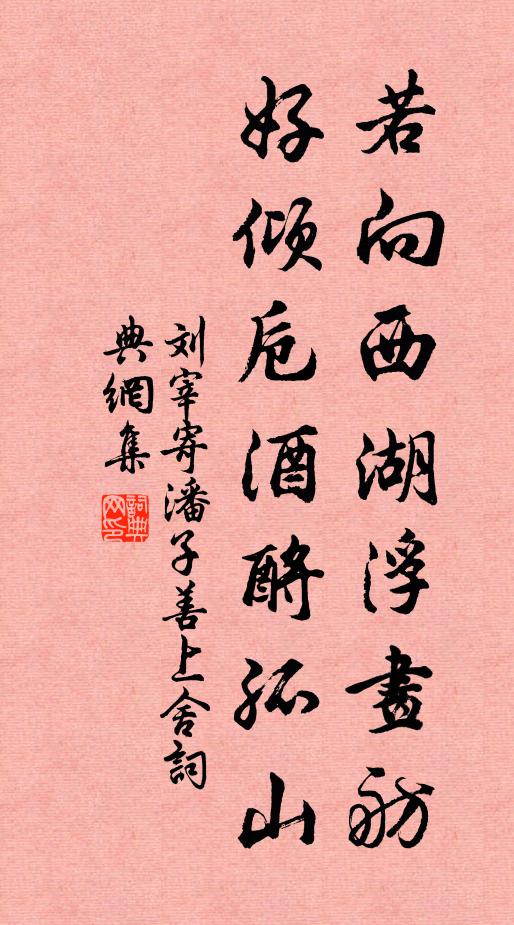 若向西湖浮畫舫
好倾卮酒酹孤山
刘宰寄潘子善上舍詞
典網集
詞典网印